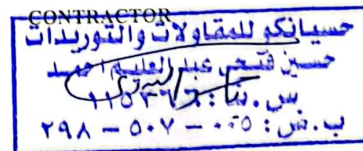 CONTRACTOR
حسيانكو للمقاولات والتوريدات
حسين فتحى عبد العليم احمد
س.ت:
ب.ض: ٠٠٥ - ٥٠٧ - ٢٩٨